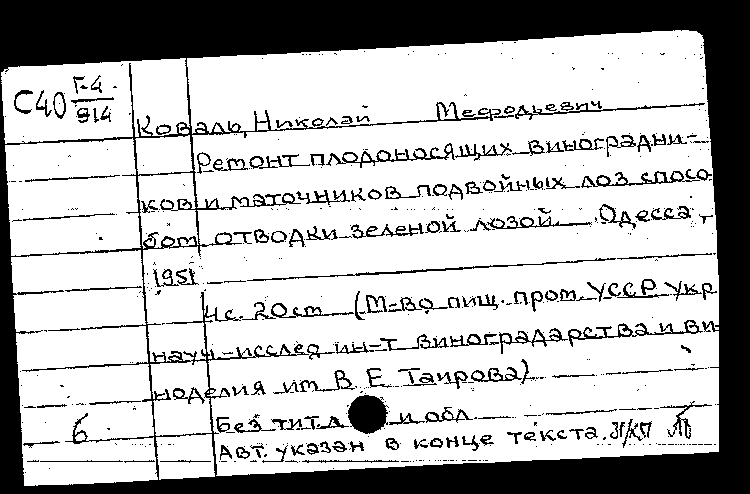 С40 Г-4
914
Коваль, Николай Мефодьевич
Ремонт плодоносящих виноградни-
ков и маточников подвойных лоз спосо-
бом отводки зеленой лозой. Одесса,
1951
4с. 20см (М-во пищ. пром. УССР Укр
науч-исслед ин-т виноградарства и ви-
ноделия им В Е Таирова)
Без тит. л и обл
б
Авт. указан в конце текста.